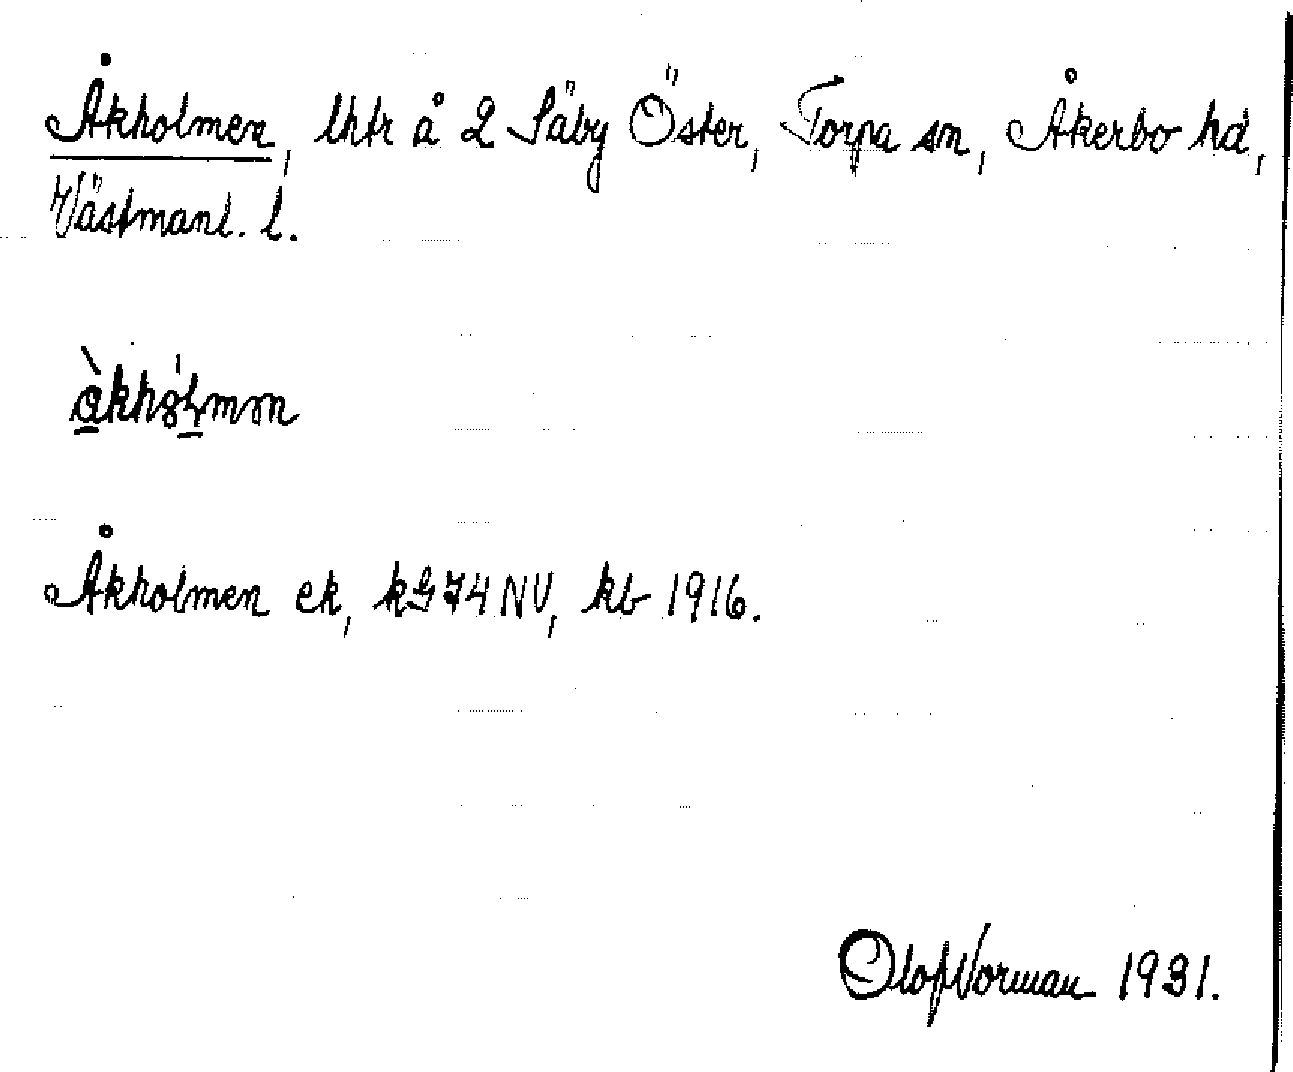 Åkholmen, lhtr å 2 Säby Öster, Torpa sn, Åkerbo hd,
Västmanl. l.
Åkholmen ek, kG 74 NV, kb 1916.
Olof Norman 1931.